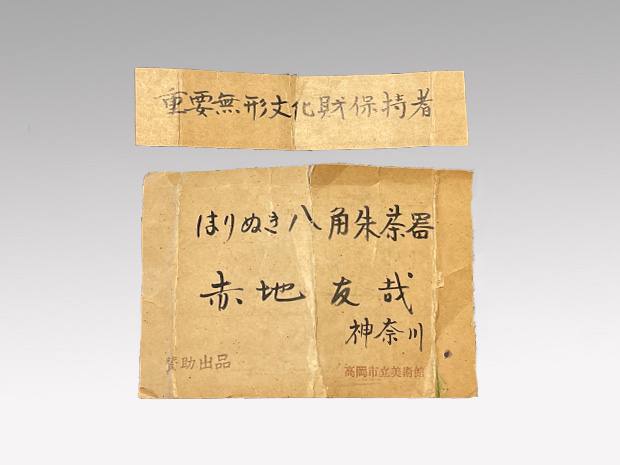 重要無形文化財保持者
はりぬき八角朱茶器
赤地友哉
神奈川
賛助出品
高岡市立美術館